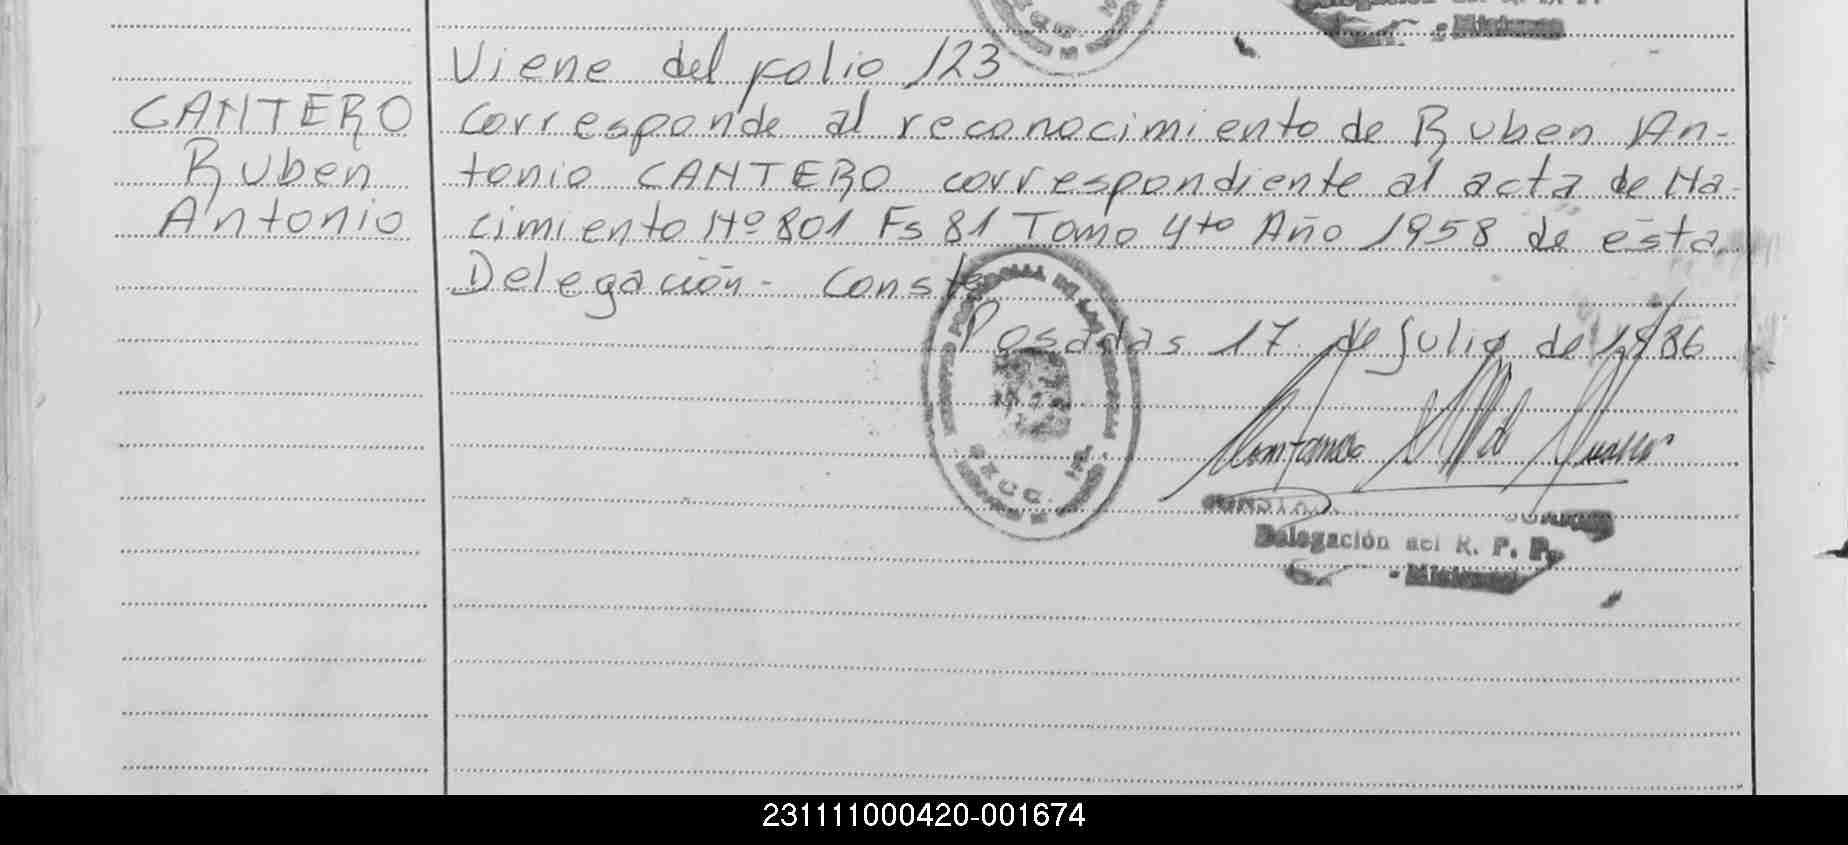 Viene del folio 123
CANTERO
Ruben
Antonio
corresponde al reconocimiento de Ruben An-
tonio CANTERO correspondiente al acta de Na-
cimiento Nº 801 Fs 81 Tomo 4to Año 1958 de esta
Delegación - Conste
Posadas 17 de Julio de 1986
Delegación del R. P. P.
- Misiones
231111000420-001674